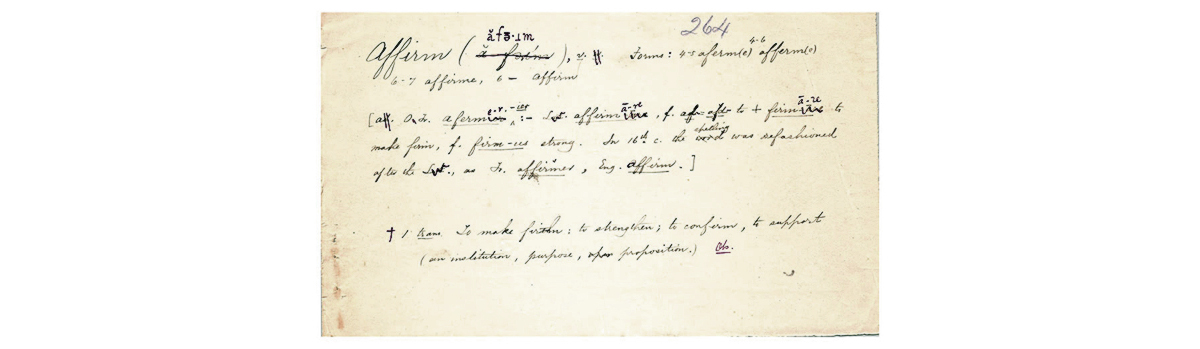 264
Affirm (ăfɜ·ɹm), v. Forms: 4-5 aferm(e) 4-6 afferm(e)
6-7 affirme, 6- Affirm
[a. O.Fr. afermer, :- Lat. affirmāre, f. af- to + firmāre to
make firm, f. firm-us strong. In 16th c. the spelling was refashioned
after the Lat., as Fr. affirmer, Eng. affirm.]
† 1 trans. To make firm; to strengthen; to confirm, to support
(an institution, purpose, proposition.) Obs.